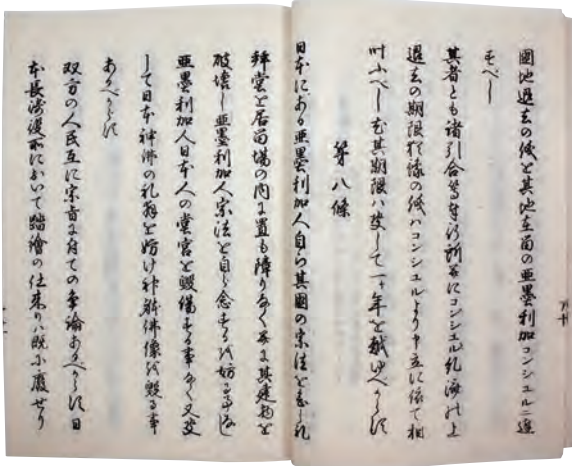 國地退去の儀を其地在留の亜墨利加コンシュルニ達
すべし
其者とも諸引合等奉行所並にコンシュル糺済の上
退去の期限猶豫の儀ハコンシュルより申立に依て相
叶ふべし尤其期限ハ決して一ヶ年を越ゆへからす
第八條
日本にある亜墨利加人自ら其國の宗法を念し礼
拝堂を居留場の内に置も障りなく並に其建物を
破壊し亜墨利加人宗法を自ら念するを妨る事なし
亜墨利加人日本人の堂宮を毀傷する事なく又決
して日本神佛の礼拝を妨け神體佛像を毀る事
あるへからす
双方の人民互に宗旨に付ての争論あるへからす日
本長崎役所において踏繪の仕来りハ既に廢せり